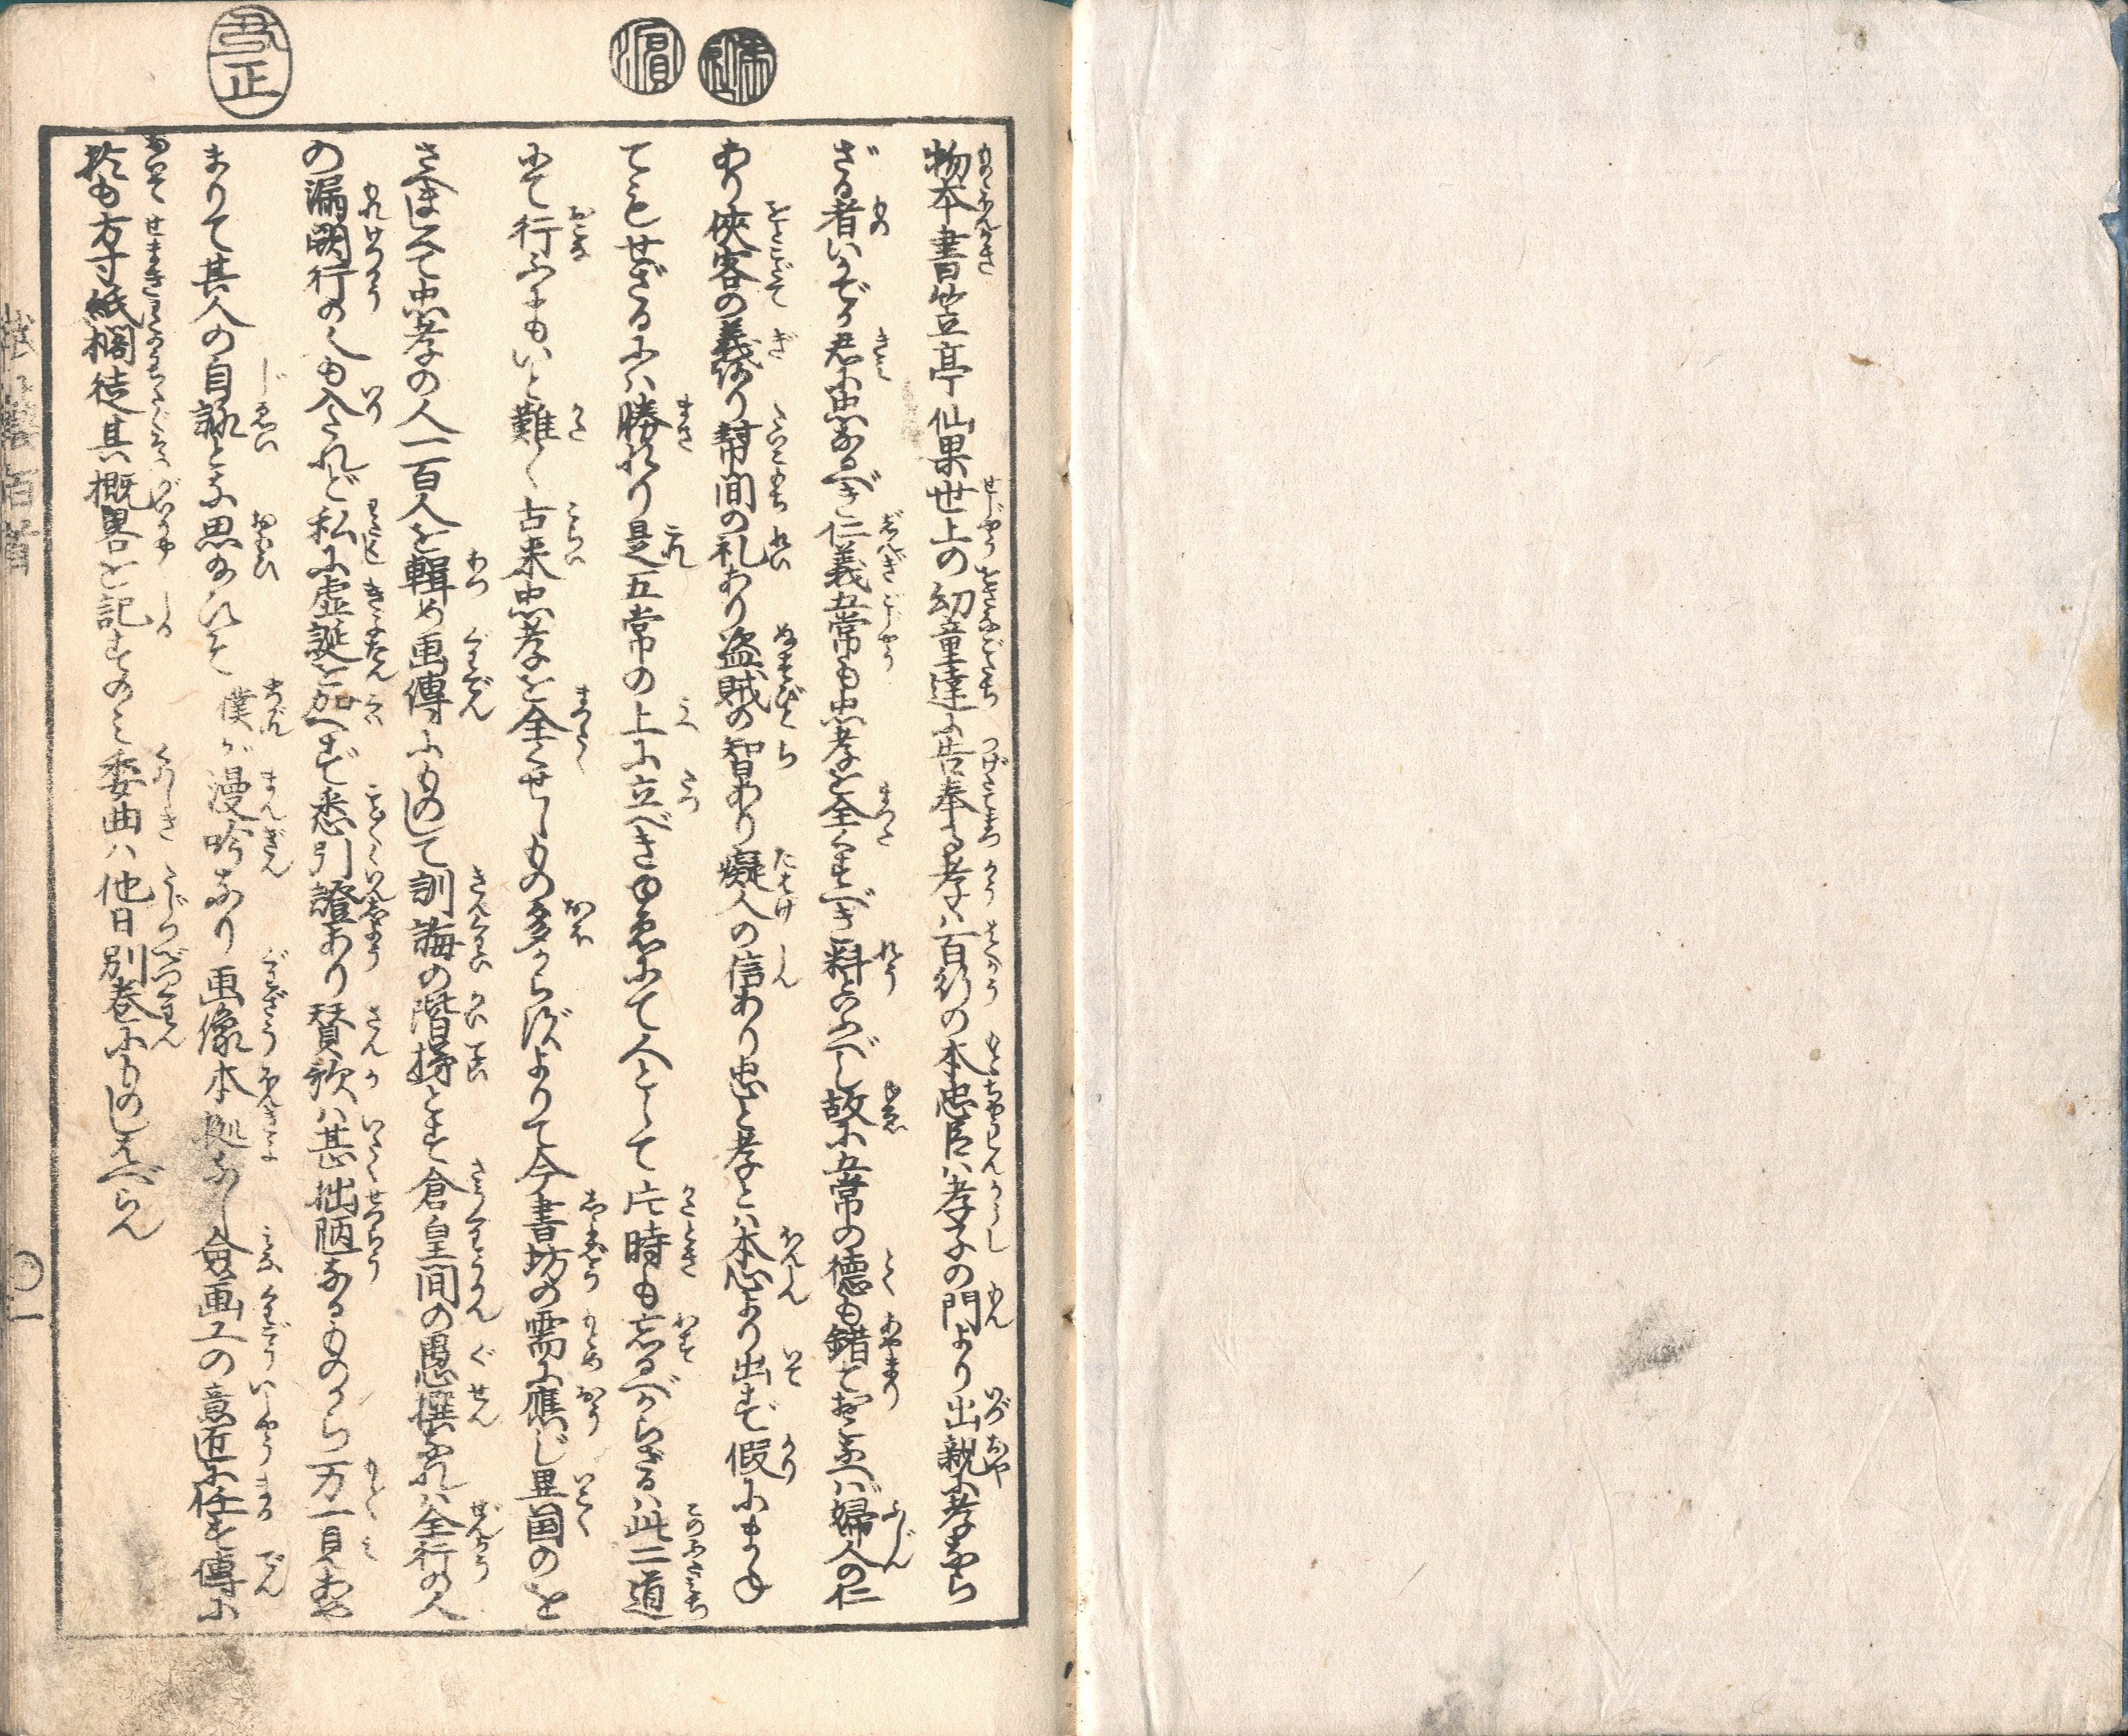 物本書笠亭仙果世上の幼童達に告奉る孝は百行の本忠臣は孝子の門より出親に孝なら
ざる者いかでか君に忠なるべき仁義五常も忠孝を全くすべき料となるべし故に五常の徳も錯ておこなへば婦人の仁
あり侠客の義あり幇間の礼あり盗賊の智あり癡人の信あり忠と孝とは本心より出すで假にもまね
てもせざるには勝れり是五常の上に立べきゆゑにて人として片時も忘るべからざるは此二道
にて行ふにもいと難く古来忠孝を全くせしもの多からずよりて今書坊の需に應じ異国のを
さへまじへて忠孝の人一百人を輯め画傳にものして訓誨の階梯とす倉皇間の愚撰なれは全行の人
の漏闕行のも入たれど私に虚誕を加へず悉引證あり賛歌は甚拙陋なるものから万一見あや
まりて其人の自詠とな思ひそ僕が漫吟なり画像本拠なし僉画工の意匠に任す傳に
於も方寸紙榻徒其概畧を記すのミ委曲は他日別巻にものしはべらん
一